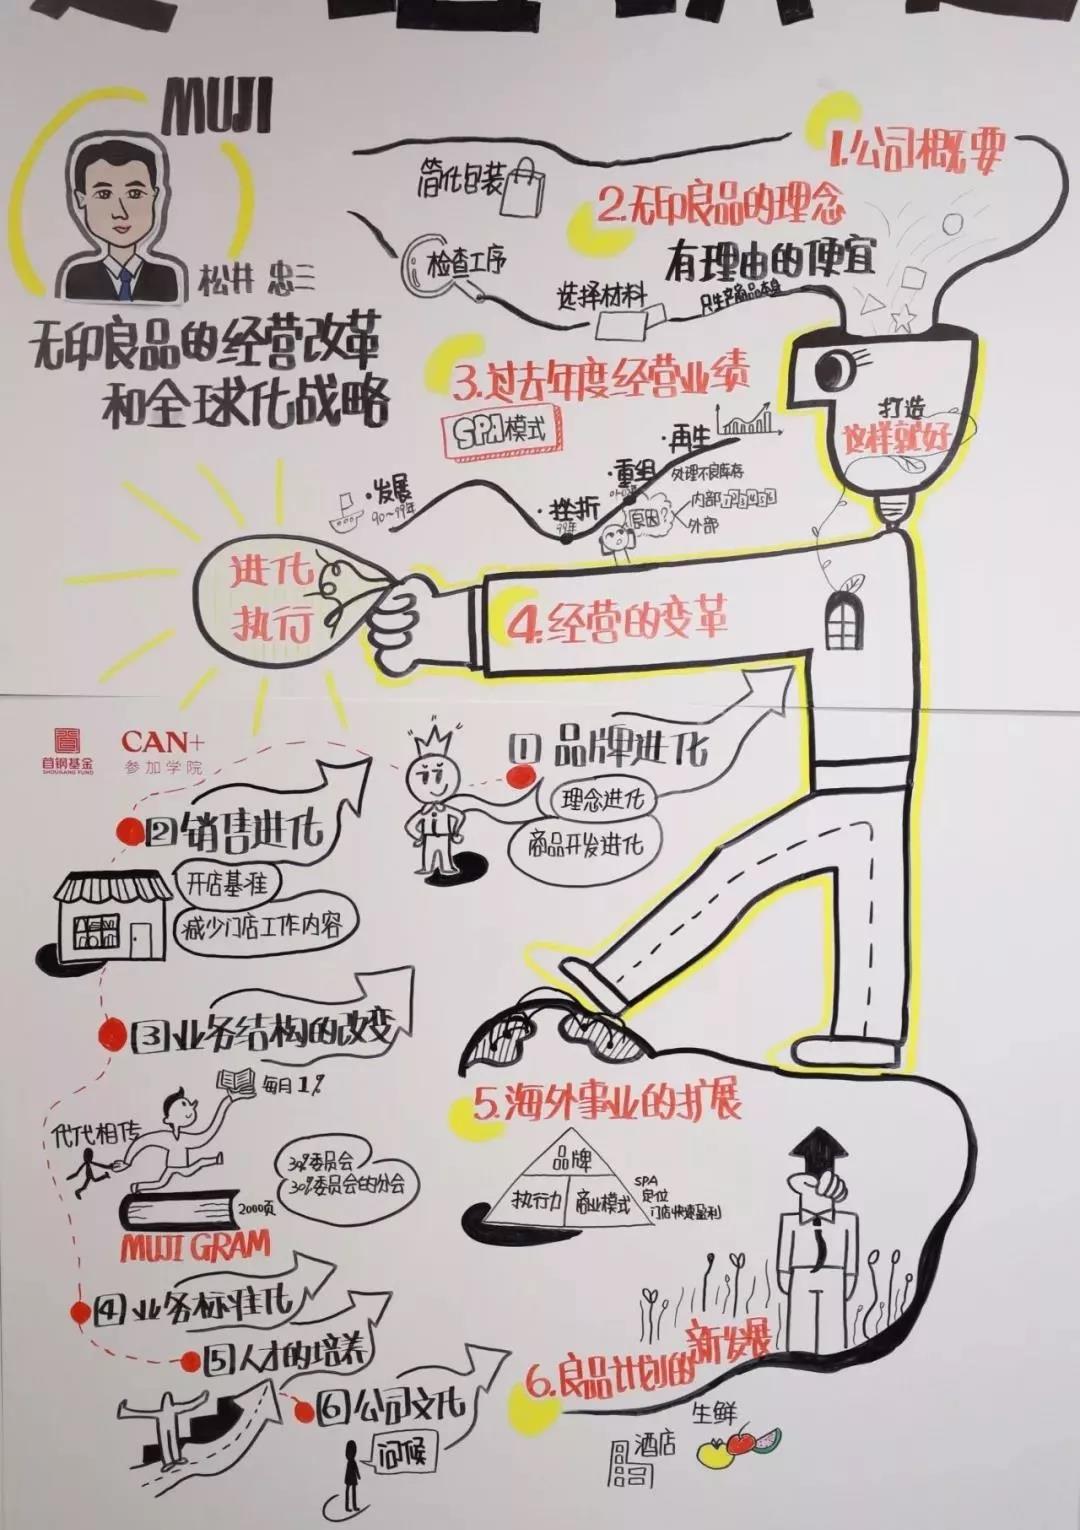 MUJI
松井 忠三
无印良品的经营改革
和全球化战略
1.公司概要
2.无印良品的理念
有理由的便宜
简化包装
检查工序
选择材料
只生产商品本身
3.过去年度经营业绩
SPA模式
·发展
90~99年
·挫折
99年
·重组
·再生
处理不良库存
原因?
内部123456
外部
打造
这样就好
进化
执行
4.经营的变革
首钢基金
SHOUGANG FUND
CAN+
参加学院
1 品牌进化
理念进化
商品开发进化
2 销售进化
开店基准
减少门店工作内容
3 业务结构的改变
每月1%
代代相传
30%委员会
30%委员会的分会
2000页
MUJI GRAM
4 业务标准化
5 人才的培养
6 公司文化
问候
5.海外事业的扩展
品牌
执行力
商业模式
SPA
定位
门店快速盈利
6.良品计划的新发展
生鲜
酒店